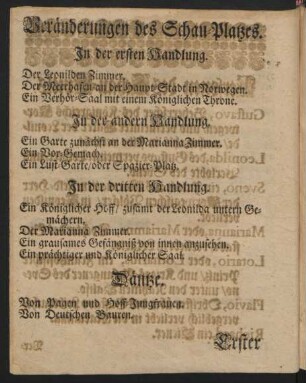 Veränderungen des Schau Platzes.
In der ersten Handlung.
Der Leonilden Zimmer.
Der Meerhafen an der Haupt Stadt in Norwegen.
Ein Verhör-Saal mit einem Königlichen Throne.
In der andern Handlung.
Ein Garte zunächst an der Marianna Zimmer.
Ein Vor-Gemach.
Ein Lust-Garte/ oder Spazier-Platz.
In der dritten Handlung.
Ein Königlicher Hoff/ zusamt der Leonilda untern Ge-
mächern.
Der Marianna Zimmer.
Ein grausames Gefängniß von innen anzusehen.
Ein prächtiger und Königlicher Saal.
Däntze.
Von Pagen und Hoff Jungfrauen.
Von Deutschen Bauren.
Erster